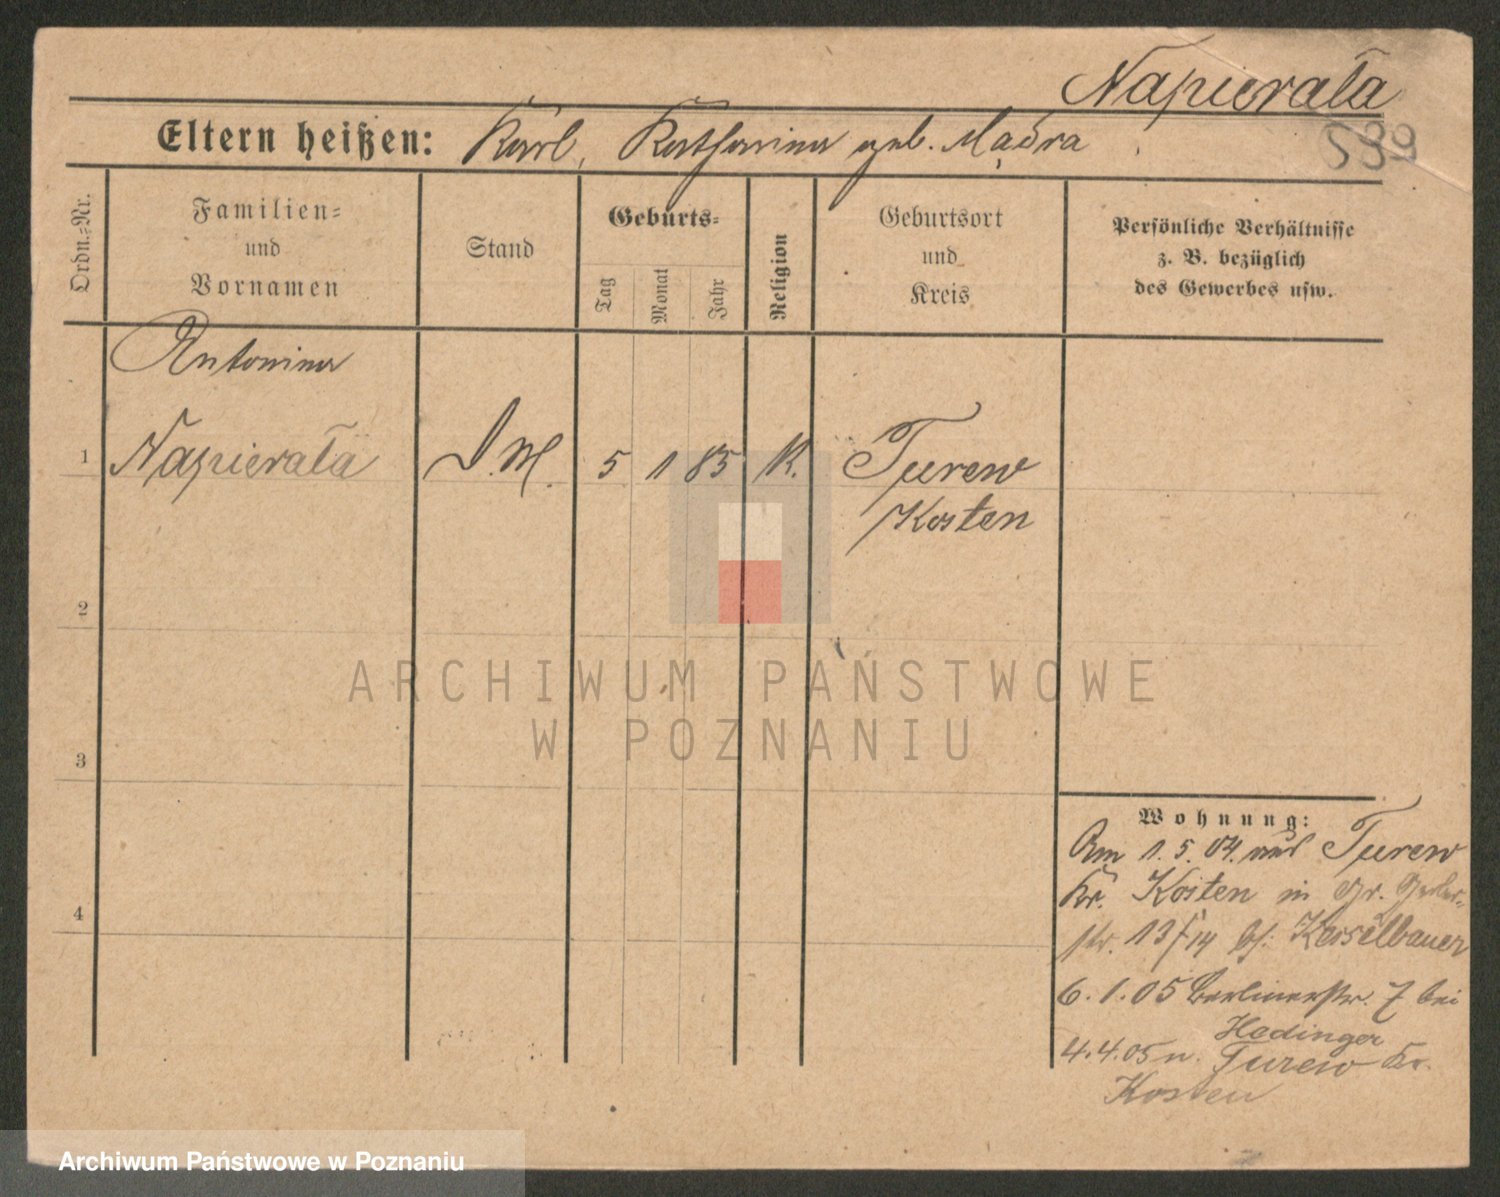 Napierała
Eltern heißen: Karl, Katharina geb. Mądra
599
Ordn.=Nr.
Familien=
und
Vornamen
Stand
Geburts=
Tag
Monat
Jahr
Religion
Geburtsort
und
Kreis
Persönliche Verhältnisse
z. B. bezüglich
des Gewerbes usw.
Antonina
1 Napierała D.M. 5 1 85 K. Turew
Kosten
2
ARCHIWUM PAŃSTWOWE
W POZNANIU
3
4
Wohnung:
Am 1. 5. 04. aus Turew
Kr. Kosten in Gr. Gerber=
str. 13/14 bei Kesselbauer
6. 1. 05 Berlinerstr. 7 bei
Hedinger
4.4.05 n. Turew Kr.
Kosten
Archiwum Państwowe w Poznaniu